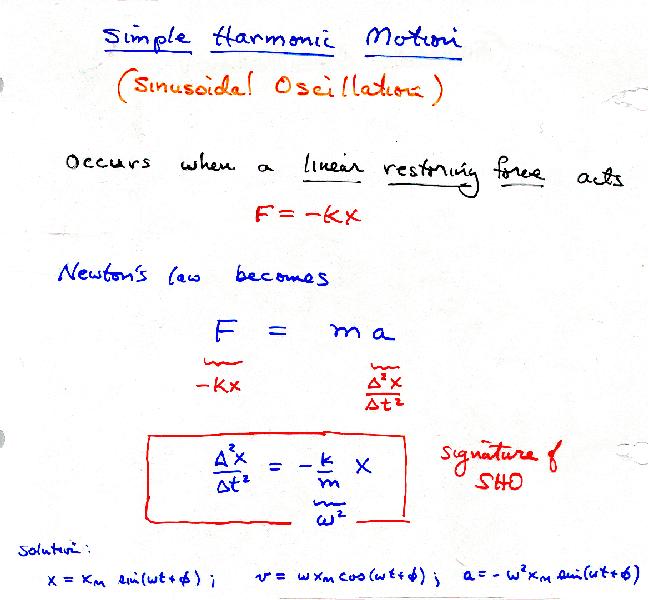 Simple Harmonic Motion
(Sinusoidal Oscillation)
occurs when a linear restoring force acts
F = -kx
Newton's law becomes
F = ma
-kx Δ²x/Δt²
Δ²x/Δt² = -k/m x
ω²
signature of
SHO
Solution:
x = xm sin(ωt+φ); v = ωxm cos(ωt+φ); a = -ω²xm sin(ωt+φ)